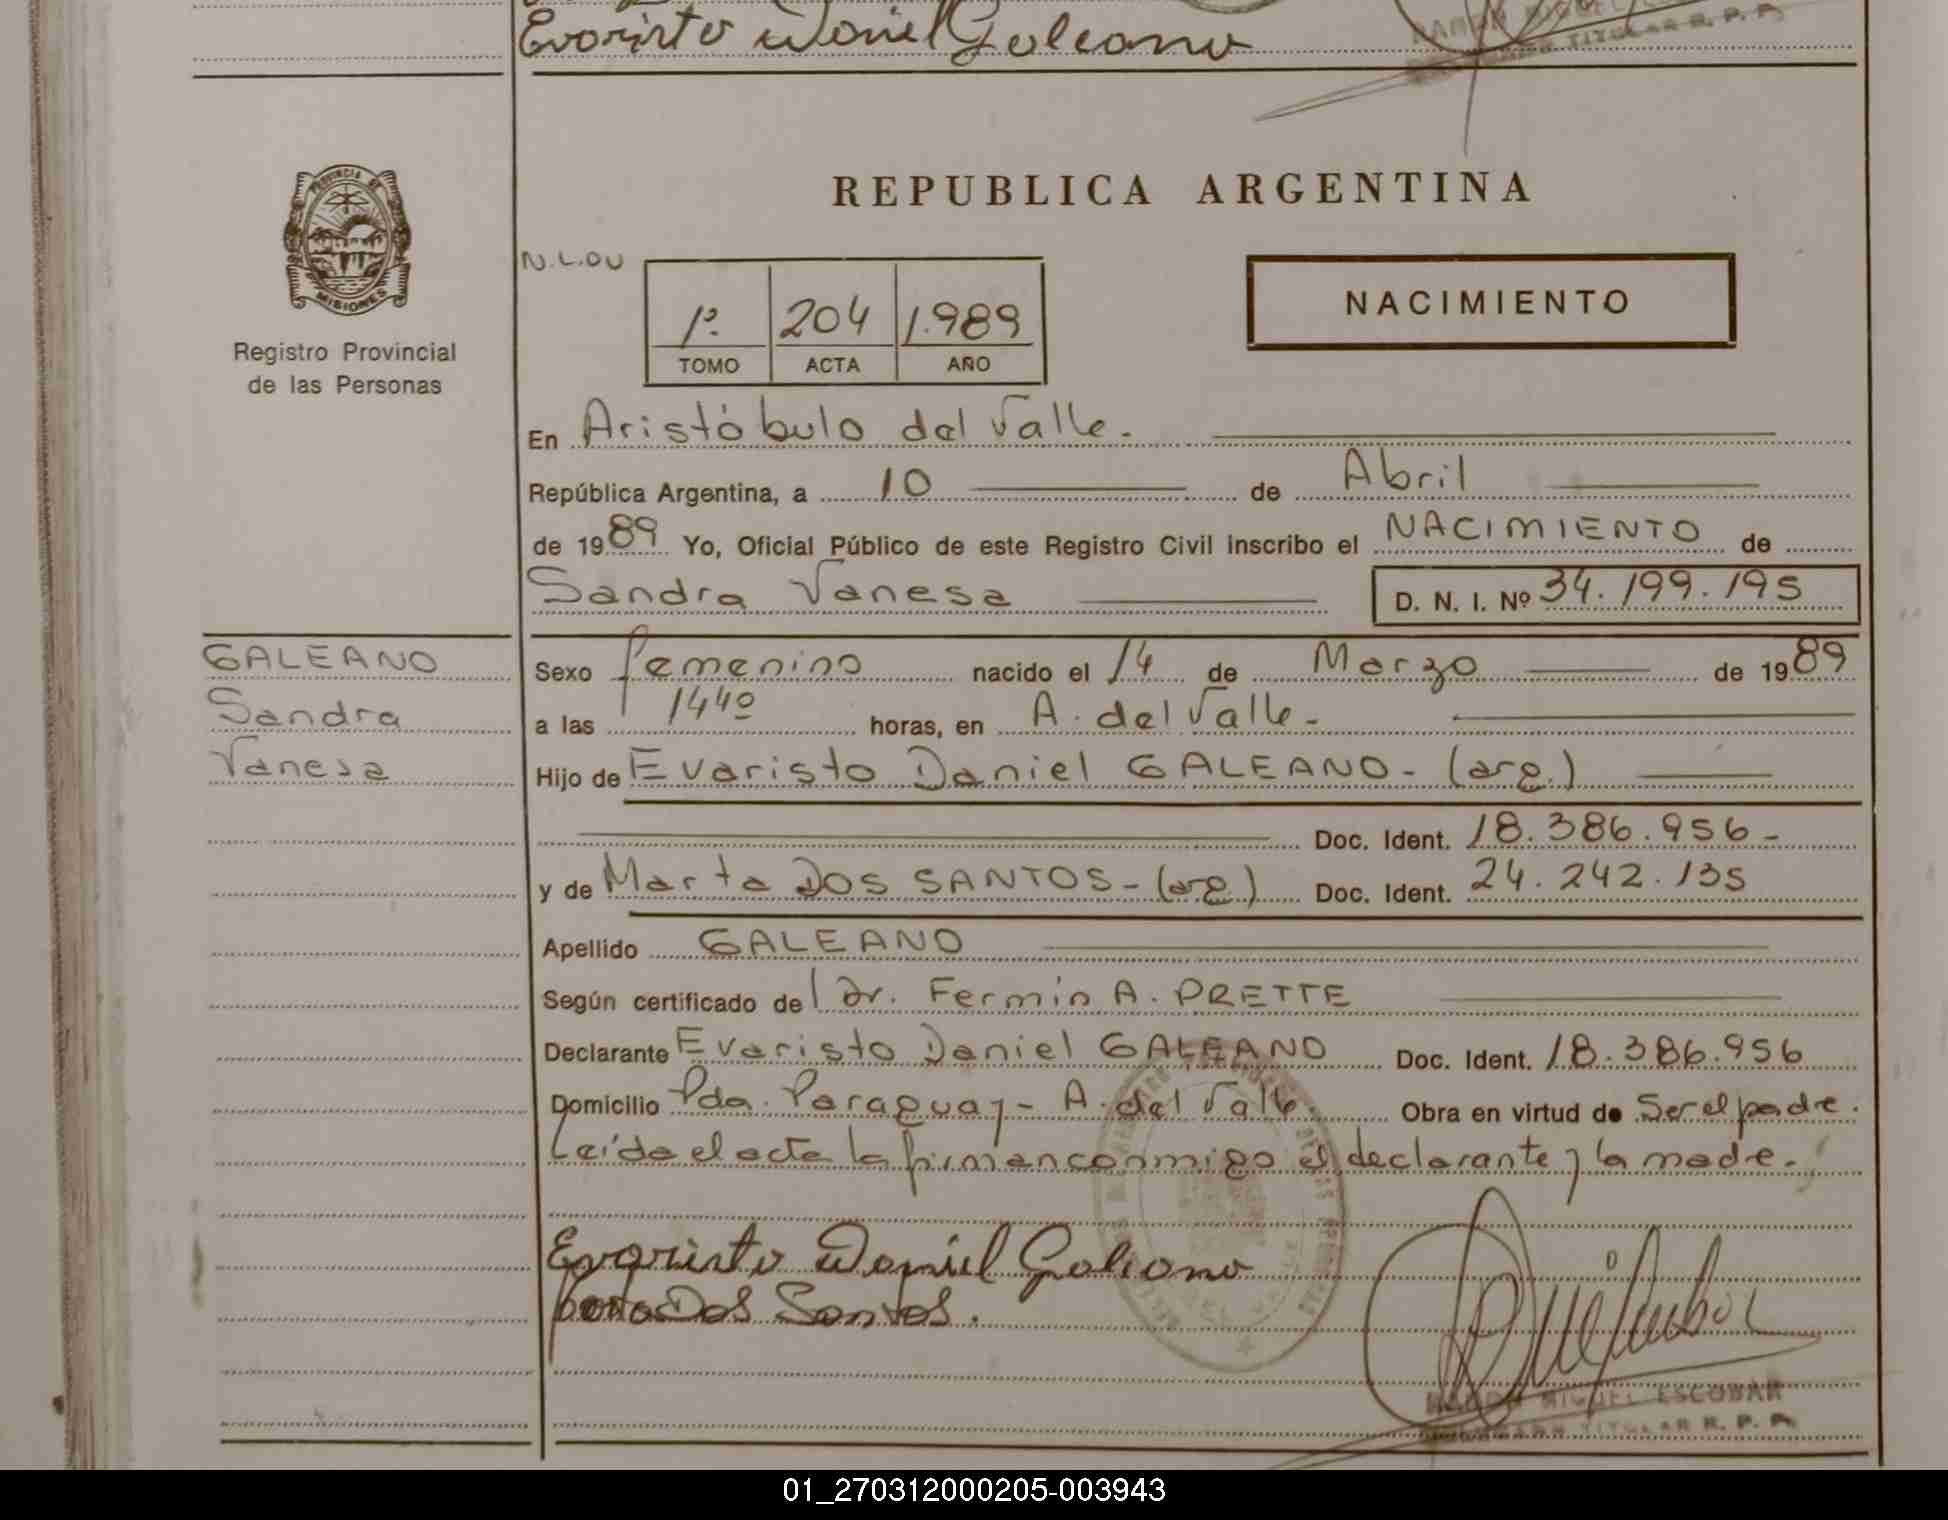 Evaristo Daniel Galeano
RAMON MIGUEL
TITULAR R. P. P.
PROVINCIA DE
MISIONES
Registro Provincial
de las Personas
REPUBLICA ARGENTINA
N.L.OU
1º 204 1.989
TOMO ACTA AÑO
NACIMIENTO
En Aristóbulo del Valle.
República Argentina, a 10 de Abril
de 1989 Yo, Oficial Público de este Registro Civil inscribo el NACIMIENTO de
Sandra Vanesa D. N. I. Nº 34.199.195
GALEANO
Sandra
Vanesa
Sexo femenino nacido el 14 de Marzo de 1989
a las 14 4º horas, en A. del Valle-
Hijo de Evaristo Daniel GALEANO- (arg.)
Doc. Ident. 18.386.956-
y de Marta DOS SANTOS-(arg.) Doc. Ident. 24.242.135
Apellido GALEANO
Según certificado del Dr. Fermín A. PRETTE
Declarante Evaristo Daniel GALEANO Doc. Ident. 18.386.956
Domicilio Pda. Paraguay- A. del Valle. Obra en virtud de Ser el padre.
Leída el acta la firman conmigo el declarante y la madre.
Evaristo Daniel Galeano
Dos Santos.
RAMON MIGUEL ESCOBAR
TITULAR R. P. P.
01_270312000205-003943